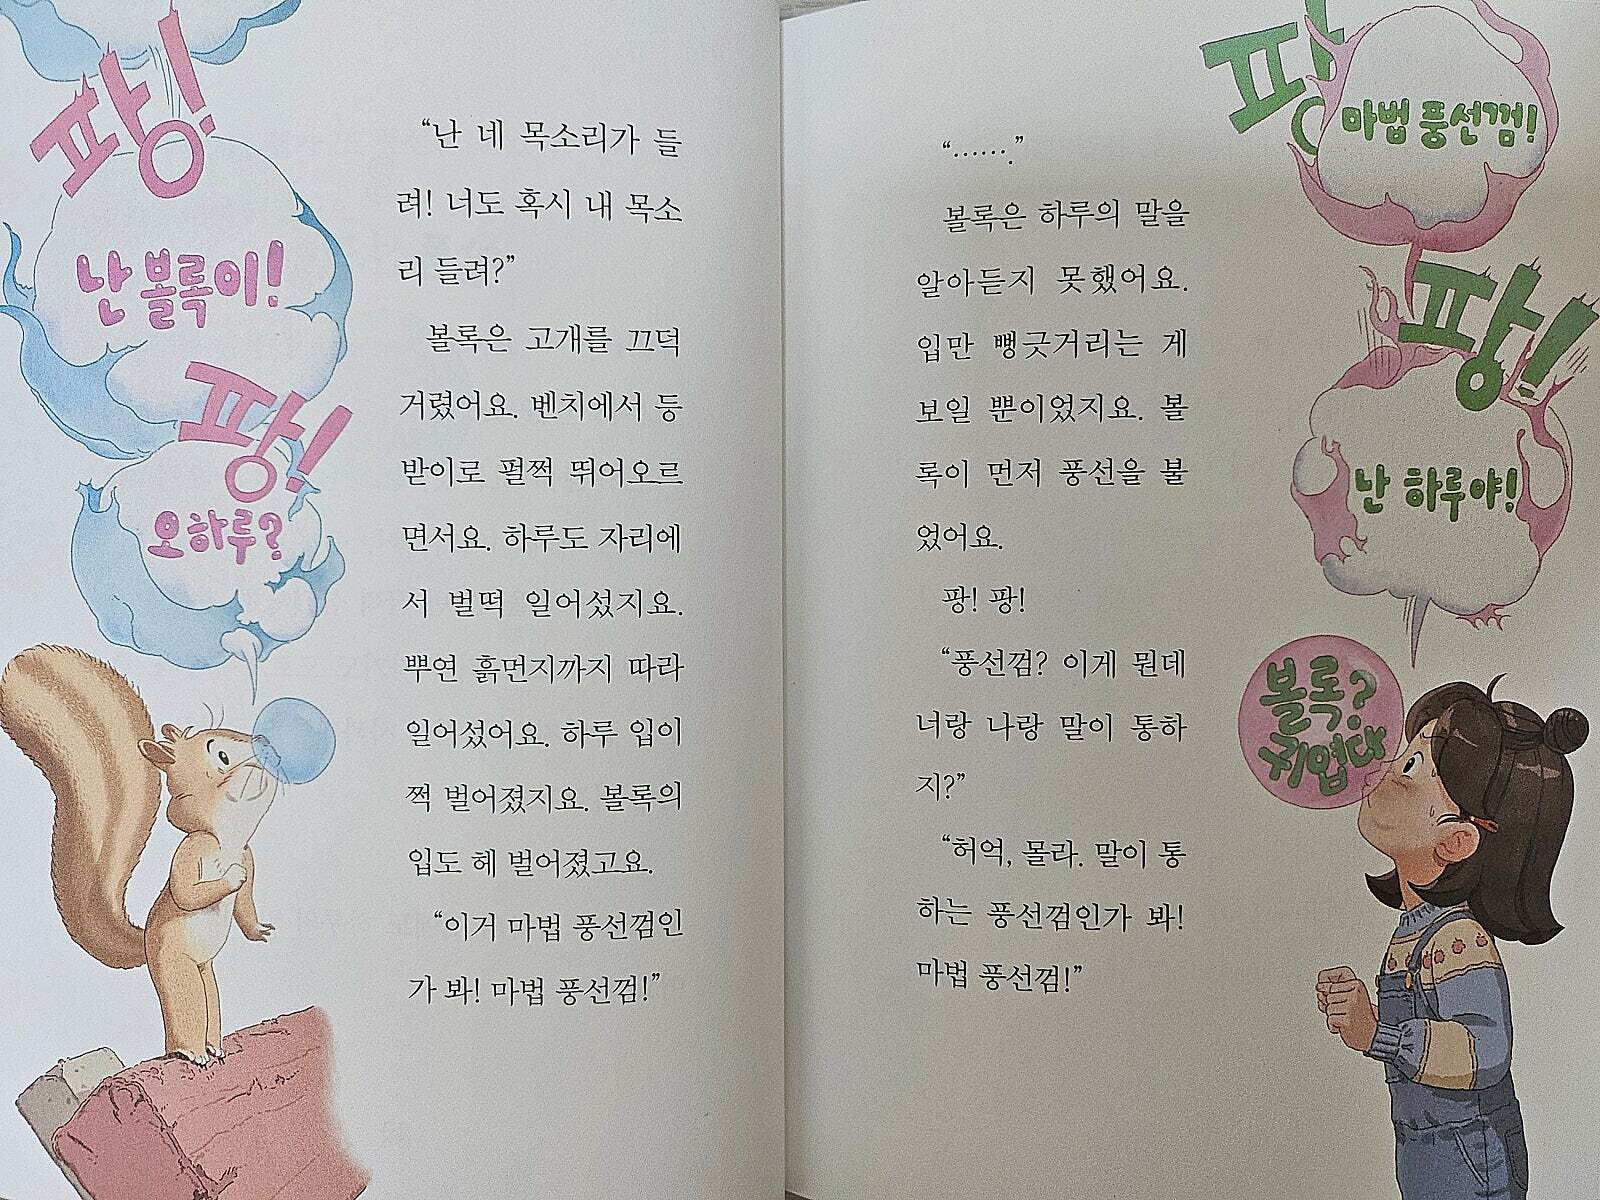 팡!
난 볼록이!
팡!
오하루?
“난 네 목소리가 들
려! 너도 혹시 내 목소
리 들려?”
볼록은 고개를 끄덕
거렸어요. 벤치에서 등
받이로 펄쩍 뛰어오르
면서요. 하루도 자리에
서 벌떡 일어섰지요.
뿌연 흙먼지까지 따라
일어섰어요. 하루 입이
쩍 벌어졌지요. 볼록의
입도 헤 벌어졌고요.
“이거 마법 풍선껌인
가 봐! 마법 풍선껌!”
“…….”
볼록은 하루의 말을
알아듣지 못했어요.
입만 뻥긋거리는 게
보일 뿐이었지요. 볼
록이 먼저 풍선을 불
었어요.
팡! 팡!
“풍선껌? 이게 뭔데
너랑 나랑 말이 통하
지?”
“허억, 몰라. 말이 통
하는 풍선껌인가 봐!
마법 풍선껌!”
팡
마법 풍선껌!
팡!
난 하루야!
볼록?
귀엽다